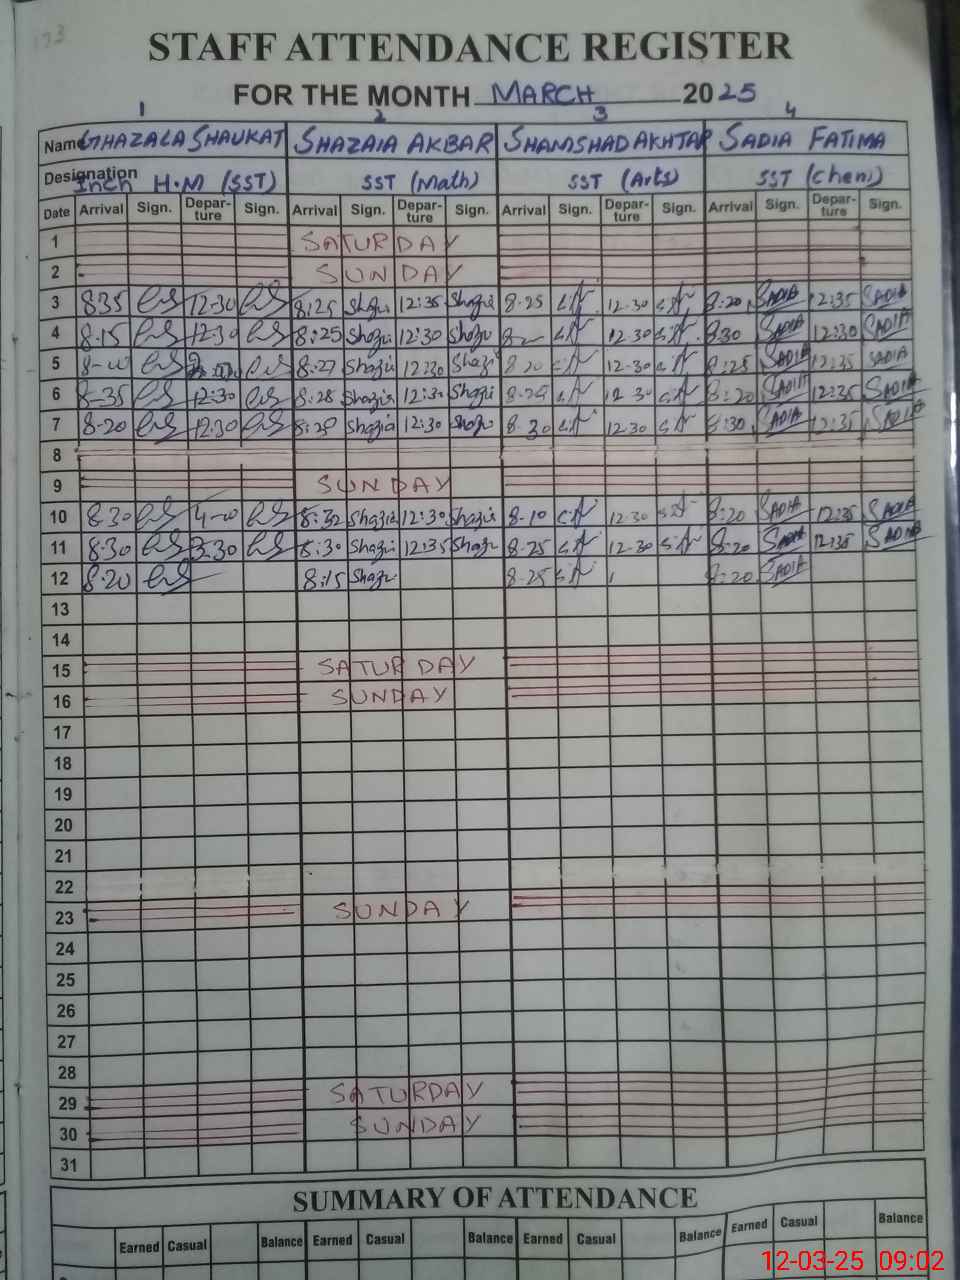 173
STAFF ATTENDANCE REGISTER
FOR THE MONTH MARCH 2025
1 2 3 4
Name GHAZALA SHAUKAT SHAZAIA AKBAR SHAMSHAD AKHTAR SADIA FATIMA
Designation Inch H.M (SST) SST (Math) SST (Arts) SST (Chem)
Date Arrival Sign. Depar-ture Sign. Arrival Sign. Depar-ture Sign. Arrival Sign. Depar-ture Sign. Arrival Sign. Depar-ture Sign.
1 SATURDAY
2 SUNDAY
3 835 12-30 8:25 12:35 8-25 12-30 8:20 SADIA 12:35 SADIA
4 8-15 12-30 8:25 Shazia 12:30 12-30 8:30 SADIA 12:30 SADIA
5 8:27 Shazia 12:30 8 20 12-30 8:25 SADIA 12:35 SADIA
6 8-35 12:30 8:28 Shazia 12:30 Shazia 8-25 12 30 8:20 SADIA 12:35 SADIA
7 8-20 12:30 Shazia 12:30 8-30 12-30 8:30 SADIA 12:35 SADIA
8
9 SUNDAY
10 8-30 4-00 8:32 Shazia 12:30 Shazia 8-10 12-30 8:20 SADIA 12:35 SADIA
11 8-30 3-30 8:30 Shazia 12:35 8-25 12-30 8:20 SADIA 12:35 SADIA
12 8-20 8:15 8-25 8:20 SADIA
13
14
15 SATURDAY
16 SUNDAY
17
18
19
20
21
22
23 SUNDAY
24
25
26
27
28
29 SATURDAY
30 SUNDAY
31
SUMMARY OF ATTENDANCE
Earned Casual Balance Earned Casual Balance Earned Casual Balance Earned Casual Balance
12-03-25 09:02